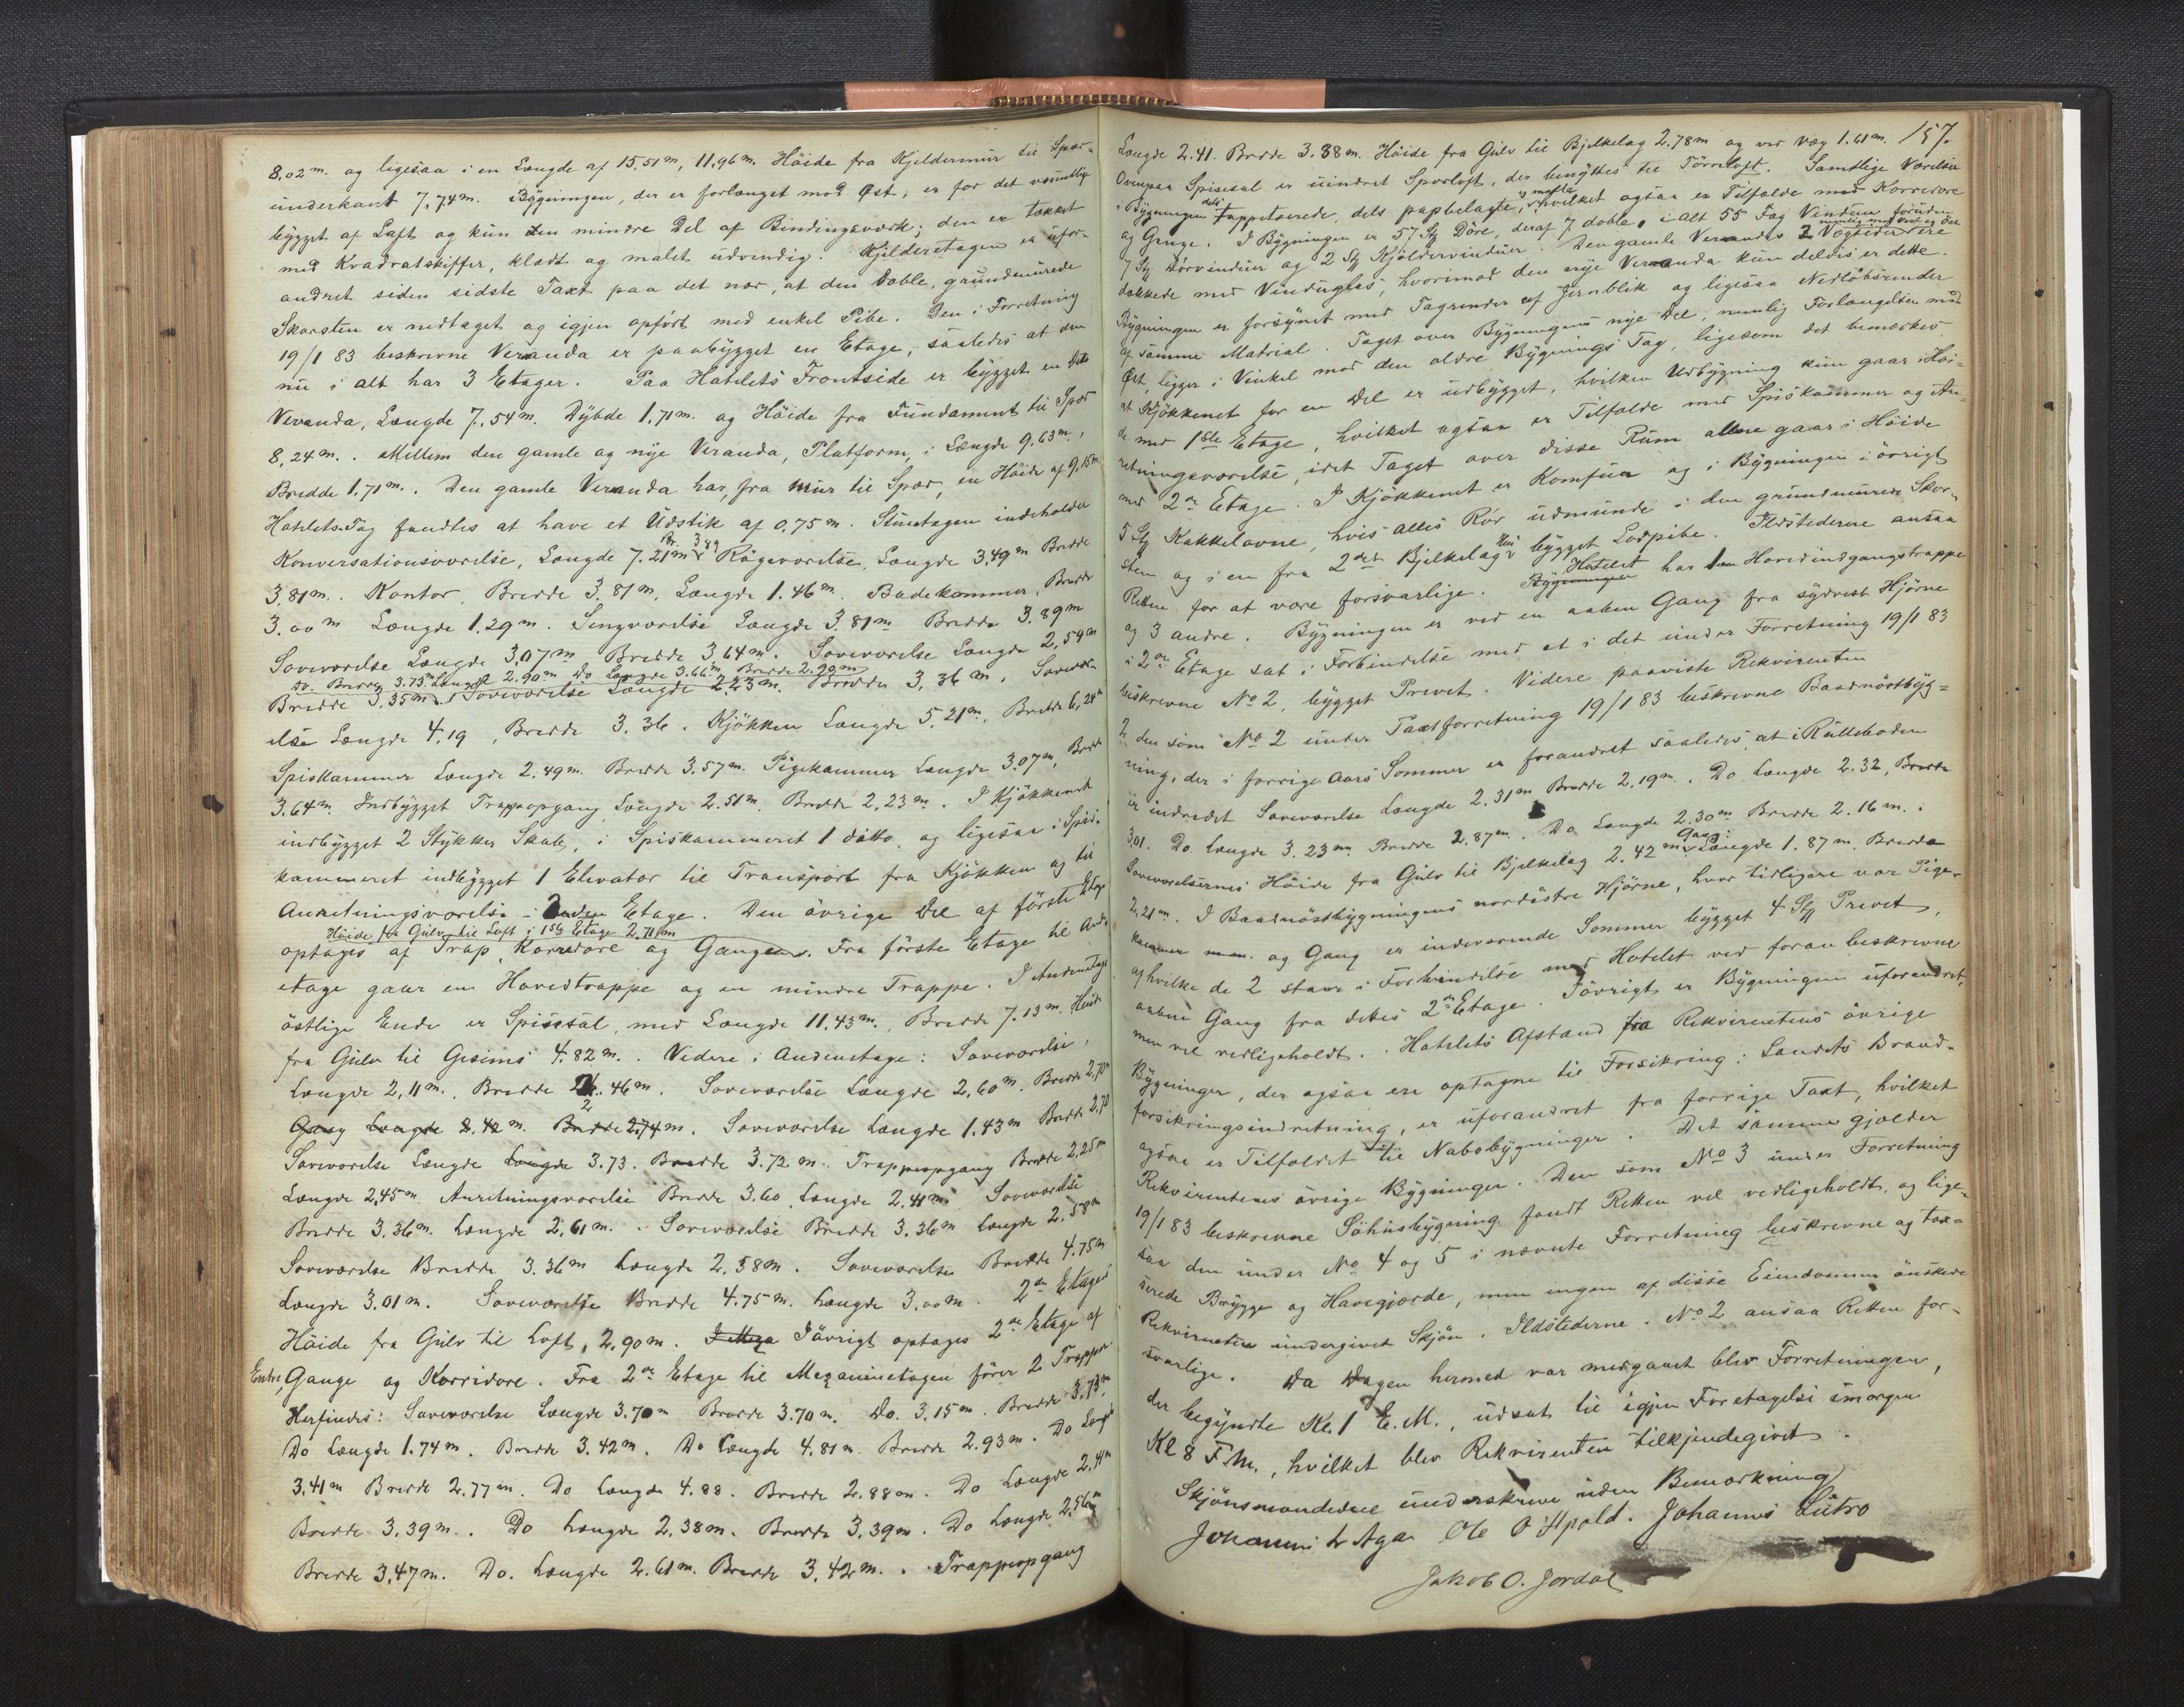 8,02 m. og ligesaa i en Længde af 15,51 m, 11,96 m. Höide fra Kjeldermur til Spær-
underkant 7,74 m. Bygningen, der er forlænget mod Øst, er for det væsentlige
bygget af Laft og kun den mindre Del af Bindingsværk; den er tækket
med Kvadratskiffer, klædt og malet udvendig. Kjelderetagen er ufor-
andret siden sidste Taxt paa det nær, at den doble, grundmurede
Skorsten er nedtaget og igjen opfört med enkel Pibe. Den i Forretning
19/1 83 beskrevne Veranda er paabygget en Etage, saaledes at den
nu i alt har 3 Etager. Paa Hotelets Frontside er bygget en
Veranda, Længde 7,54 m. Dybde 1,71 m. og Höide fra Fundament til Spær
8,24 m. Mellem den gamle og nye Veranda, Platform, i Længde 9,63 m.,
Bredde 1,71 m. Den gamle Veranda har, fra Mur til Spær, en Höide af 9,15 m
Hotelets Tag fandtes at have et Udstik af 0,75 m. Stuetagen indeholder
Konversationsværelse, Længde 7.21 m Br. 3.89 Rögeværelse, Længde 3,49 m Bredde
3,81 m. Kontor, Bredde 3,81 m, Længde 1.46 m. Badekammer, Bredde
3.00 m Længde 1.29 m. Sengværelse Længde 3,81 m Bredde 3,89 m
Soveværelse Længde 3,07 m Bredde 3,64 m. Soveværelse Længde 2,54 m
Do. Bredde 3.73 m Længde 2.90 m Do Længde 3.66 m Bredde 2.90 m
Bredde 3,35 m. Soveværelse Længde 2,23 m. Bredde 3,36 m. Sovevær-
else Længde 4,19, Bredde 3.36. Kjökken Længde 5,21 m. Bredde 6,24 m
Spiskammer Længde 2,49 m. Bredde 3,57 m. Pigekammer Længde 3,07 m, Bredde
3,64 m. Indbygget Trappopgang Længde 2.51 m. Bredde 2,23 m. I Kjökkenet
indbygget 2 Stykker Skabe, i Spiskammeret 1 ditto, og ligesaa i Spis-
kammeret indbygget 1 Elevator til Transport fra Kjökken og til
Anretningsværelse i Etage. Den övrige Del af förste Etage
Höide fra Gulv til Loft i 1ste Etage 2,71 m
optages af Trap, Korridore og Gange. Fra förste Etage til Anden
etage gaar en Hovedtrappe og en mindre Trappe. I Andenetages
östlige Ende er Spisesal, med Længde 11,43 m., Bredde 7.13 m. Höide
fra Gulv til Gesims 4.82 m. Videre i Andenetage: Soveværelse,
Længde 2,11 m. Bredde 2.46 m. Soveværelse Længde 2,60 m. Bredde 2,70 m
Gang Længde 2.42 m. Bredde 2.74 m. Soveværelse Længde 1.43 m Bredde 2,70
Soveværelse Længde Længde 3.73. Bredde 3.72 m. Trappeopgang Bredde 2,25 m
Længde 2,45 m. Anretningsværelse Bredde 3.60 Længde 2,41 m. Soveværelse
Bredde 3.36 m. Længde 2,61 m. Soveværelse Bredde 3.36 m Længde 2.58 m
Soveværelse Bredde 3.36 m Længde 2.58 m. Soveværelse Bredde 4.75 m
Længde 3.01 m. Soveværelse Bredde 4.75 m. Længde 3,00 m. 2den Etages
Höide fra Gulv til Loft, 2,90 m. I övrigt optages 2den Etage af
Entre, Gange og Korridore. Fra 2den Etage til Mezaninetagen förer 2 Trapper
Herfindes: Soveværelse Længde 3.70 m Bredde 3.70 m. Do. 3,15 m. Bredde 3,73 m
Do Længde 1.74 m. Bredde 3.42 m. Do Længde 4.81 m. Bredde 2.93 m. Do Længde
3,41 m Bredde 2.77 m. Do Længde 4.88. Bredde 2.88 m. Do Længde 2,41 m
Bredde 3.39 m. Do Længde 2,38 m. Bredde 3,39 m. Do Længde 2,56 m
Bredde 3,47 m. Do. Længde 2.61 m. Bredde 3,42 m. Trappeopgang
157.
Længde 2.41. Bredde 3.38 m. Höide fra Gulv til Bjelkelag 2,78 m og ved Væg 1.61 m.
Ovenpaa Spisesal er uindret Spærloft, der benyttes til Törreloft. Samtlige Værelser
i Bygningen dels tappetserede, dels papbelagte, og malte, hvilket ogsaa er Tilfælde med Korridore
og Gange. I Bygningen er 57 Stk Döre, deraf 7 doble, i alt 55 Fag Vinduer foruden
7 Stk Dörvinduer og 2 Stk Kjældervinduer. Den gamle Verandas 2 Vægsider ere
dækkede med Vinduglas, hvorimod den nye Veranda kun deldis er dette.
Bygningen er forsynet med Tagrender af Jernblik og ligesaa Nedlöbsrender
af samme Matrial. Taget over Bygningens nye Del, nemlig Forlængelsen mod
Øst, ligger i Vinkel mod den ældre Bygnings Tag, ligesom det bemærkes
at Kjökkenet for en Del er udbygget, hvilken Udbygning kun gaar i Höi-
de med 1ste Etage, hvilket ogsaa er Tilfælde med Spiskammer og An-
retningsværelse, idet Taget over disse Rum allene gaar i Höide
med 2den Etage. I Kjökkenet er Komfur og i Bygningen i övrigt
5 Stk Kakkelovne, hvis alles Rör udmunde i den grundmurede Skor-
sten og i en fra 2det Bjelkelag bygget Lodpibe. Ildstederne ansaa
Retten for at være forsvarlige. Bygningen Hotelet har 1 Hovedindgangstrappe
og 3 andre. Bygningen er ved en aaben Gang fra sydvest Hjörne
i 2den Etage sat i Forbindelse med et i det under Forretning 19/1 83
beskrevne No 2, bygget Prevet. Videre paaviste Rekvirenten
2, den som No 2 under Taxtforretning 19/1 83 beskrevne Baadnöstbyg-
ning, der i forrige Aars Sommer er forandret saaledes at i Rulleboden
er indredet Soveværelse Længde 2.31 m Bredde 2,19 m. Do Længde 2.32, Bredde
3,01. Do Længde 3.23 m Bredde 2.87 m. Do Længde 2.30 m Bredde 2.16 m.
Soveværelsernes Höide fra Gulv til Bjelkelag 2.42 m Gang: Længde 1.87 m. Bredde
2,21 m. I Baadnöstbygningens nordöstre Hjörne, hvor tidligere var Pige-
kammer og Gang er indeværende Sommer bygget 4 Stk Prevet,
af hvilke de 2 staar i Forbindelse med Hotelet ved foran beskrevne
aabne Gang fra dettes 2den Etage. I övrigt er Bygningen uforandret,
men vel vedligeholdt. Hotelets Afstand fra Rekvirentens övrige
Bygninger, der ogsaa ere optagne til Forsikring i Landets Brand-
forsikringsindretning, er uforandret fra forrige Taxt, hvilket
ogsaa er Tilfældet til Nabobygninger. Det samme gjælder
Rekvirentens övrige Bygninger. Den som No 3 under Forretning
19/1 83 beskrevne Söhusbygning fandt Retten vel vedligeholdt, og lige-
saa den under No 4 og 5 i nævnte Forretning beskrevne og tax-
erede Brygge og Havegjærde, men ingen af disse Eiendomme önskede
Rekvirenten undergivet Skjön. Ildstederne i No 2 ansaa Retten for-
svarlige. Da Dagen hermed var medgaaet blev Forretningen,
der begyndte Kl. 1 E.M., udsat til igjen Foretagelse imorgen
Kl 8 F.M., hvilket blev Rekvirenten tilkjendegivet.
Skjönsmændene underskrive uden Bemærkning
Johannes L Aga Ole O Opold. Johannes Lutro
Jakob O. Jordal